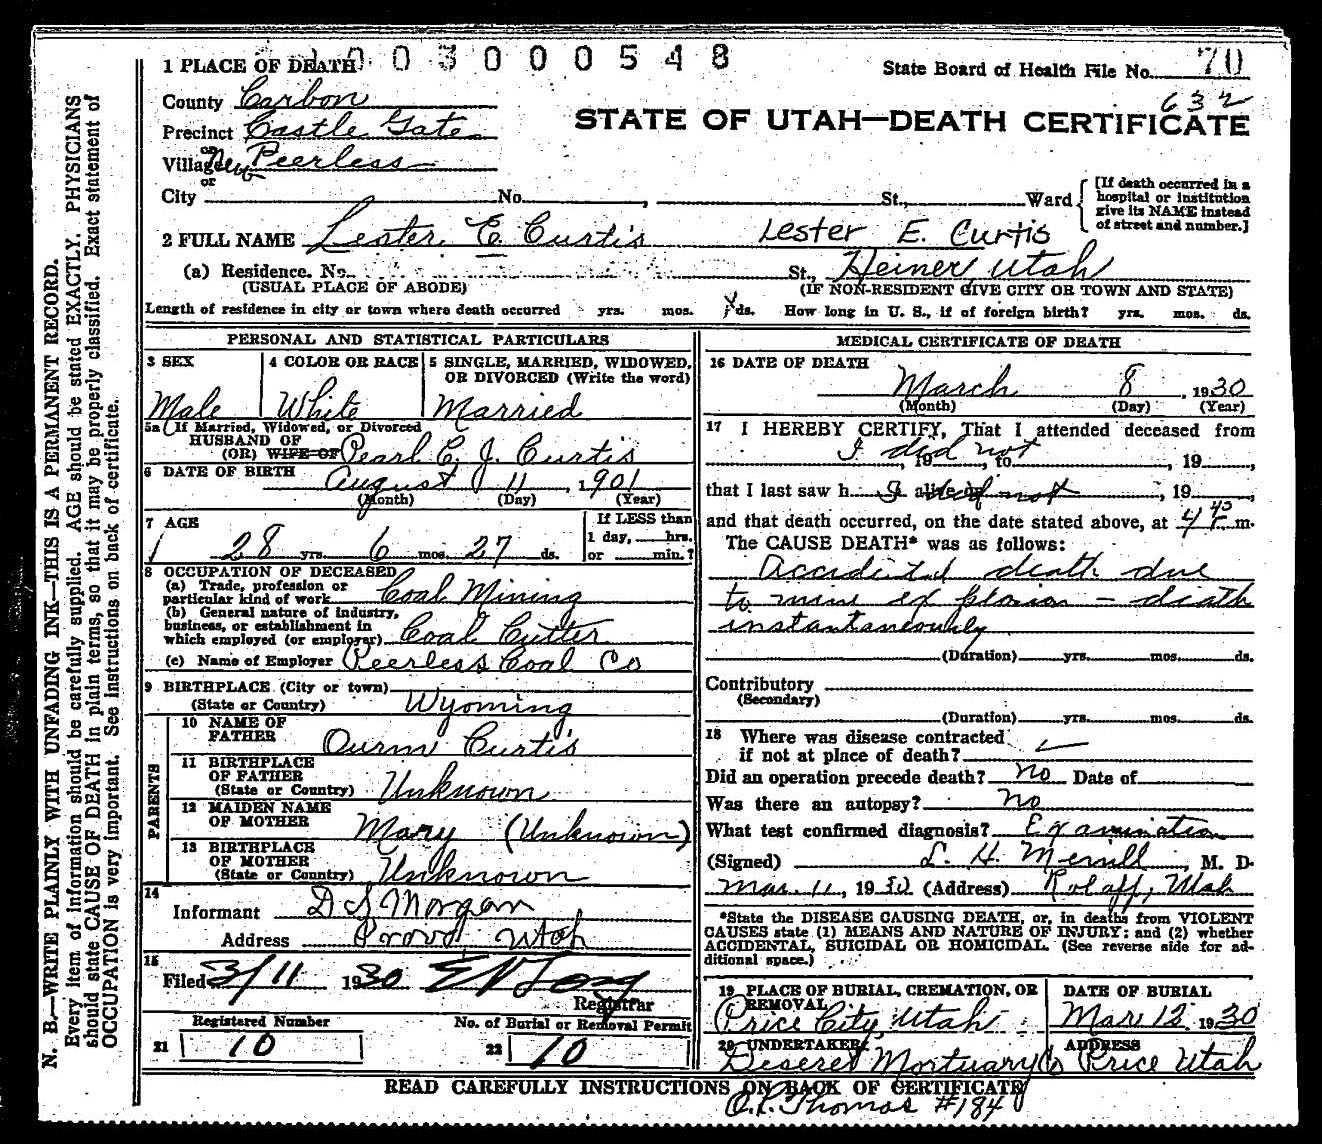 1003000548
1 PLACE OF DEATH
State Board of Health File No. 70
632
County Carbon
STATE OF UTAH—DEATH CERTIFICATE
Precinct Castle Gate
or
Village Peerless
or
City No. , St., Ward
[If death occurred in a hospital or institution give its NAME instead of street and number.]
2 FULL NAME Lester E. Curtis Lester E. Curtis
(a) Residence. No. St., Heiner, Utah
(USUAL PLACE OF ABODE) (IF NON-RESIDENT GIVE CITY OR TOWN AND STATE)
Length of residence in city or town where death occurred yrs. mos. ds. How long in U. S., if of foreign birth? yrs. mos. ds.
PERSONAL AND STATISTICAL PARTICULARS
3 SEX 4 COLOR OR RACE 5 SINGLE, MARRIED, WIDOWED,
OR DIVORCED (Write the word)
Male White Married
5a If Married, Widowed, or Divorced
HUSBAND OF
(OR) WIFE OF Pearl C. J. Curtis
6 DATE OF BIRTH August 11, 1901
(Month) (Day) (Year)
7 AGE If LESS than
1 day, hrs.
28 yrs. 6 mos. 27 ds. or min.?
8 OCCUPATION OF DECEASED
(a) Trade, profession or
particular kind of work Coal Mining
(b) General nature of industry,
business, or establishment in
which employed (or employer) Coal Cutter
(c) Name of Employer Peerless Coal Co
9 BIRTHPLACE (City or town)
(State or Country) Wyoming
PARENTS
10 NAME OF
FATHER Curtis
11 BIRTHPLACE
OF FATHER
(State or Country) Unknown
12 MAIDEN NAME
OF MOTHER Mary (Unknown)
13 BIRTHPLACE
OF MOTHER
(State or Country) Unknown
14
Informant D S Morgan
Address Provo, Utah
15
Filed 3/11 1930
Registrar
Registered Number No. of Burial or Removal Permit
21 10 22 10
MEDICAL CERTIFICATE OF DEATH
16 DATE OF DEATH
March 8, 1930
(Month) (Day) (Year)
17 I HEREBY CERTIFY, That I attended deceased from
I did not
, 19 , to , 19 ,
that I last saw h alive on , 19 ,
I did not
and that death occurred, on the date stated above, at 4 45 P m.
The CAUSE DEATH* was as follows:
Accidental death due
to mine explosion – death
instantaneously
(Duration) yrs. mos. ds.
Contributory
(Secondary)
(Duration) yrs. mos. ds.
18 Where was disease contracted
if not at place of death?
Did an operation precede death? no Date of
Was there an autopsy? no
What test confirmed diagnosis? Examination
(Signed) L. H. Merrill, M. D.
Mar. 11, 1930 (Address) Rolapp, Utah
*State the DISEASE CAUSING DEATH, or, in deaths from VIOLENT
CAUSES state (1) MEANS AND NATURE OF INJURY; and (2) whether
ACCIDENTAL, SUICIDAL OR HOMICIDAL. (See reverse side for ad-
ditional space.)
19 PLACE OF BURIAL, CREMATION, OR DATE OF BURIAL
REMOVAL
Price City, Utah Mar 12 1930
20 UNDERTAKER ADDRESS
Deseret Mortuary Co Price Utah
READ CAREFULLY INSTRUCTIONS ON BACK OF CERTIFICATE
O. P. Thomas #184
N. B.—WRITE PLAINLY WITH UNFADING INK—THIS IS A PERMANENT RECORD.
Every item of information should be carefully supplied. AGE should be stated EXACTLY. PHYSICIANS
should state CAUSE OF DEATH in plain terms, so that it may be properly classified. Exact statement of
OCCUPATION is very important. See instructions on back of certificate.